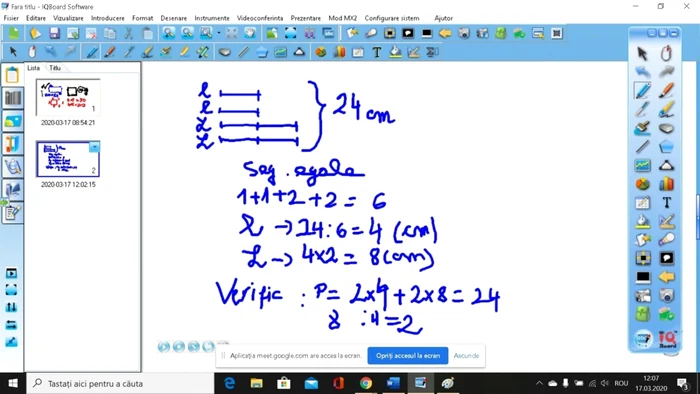 Fara titlu - IQBoard Software
Fisier Editare Vizualizare Introducere Format Desenare Instrumente Videoconferinta Prezentare Mod MX2 Configurare sistem Ajutor
Lista Titlu
1
2020-03-17 08:54:21
2
2020-03-17 12:02:15
l
l
L
L
24 cm
Seg. egale
1+1+2+2=6
l → 24:6=4 (cm)
L → 4x2=8(cm)
Verific: P= 2x4+2x8=24
8 :4=2
IQ Board
Aplicația meet.google.com are acces la ecran.
Opriți accesul la ecran
Ascunde
Tastați aici pentru a căuta
ROU
12:07
17.03.2020
3